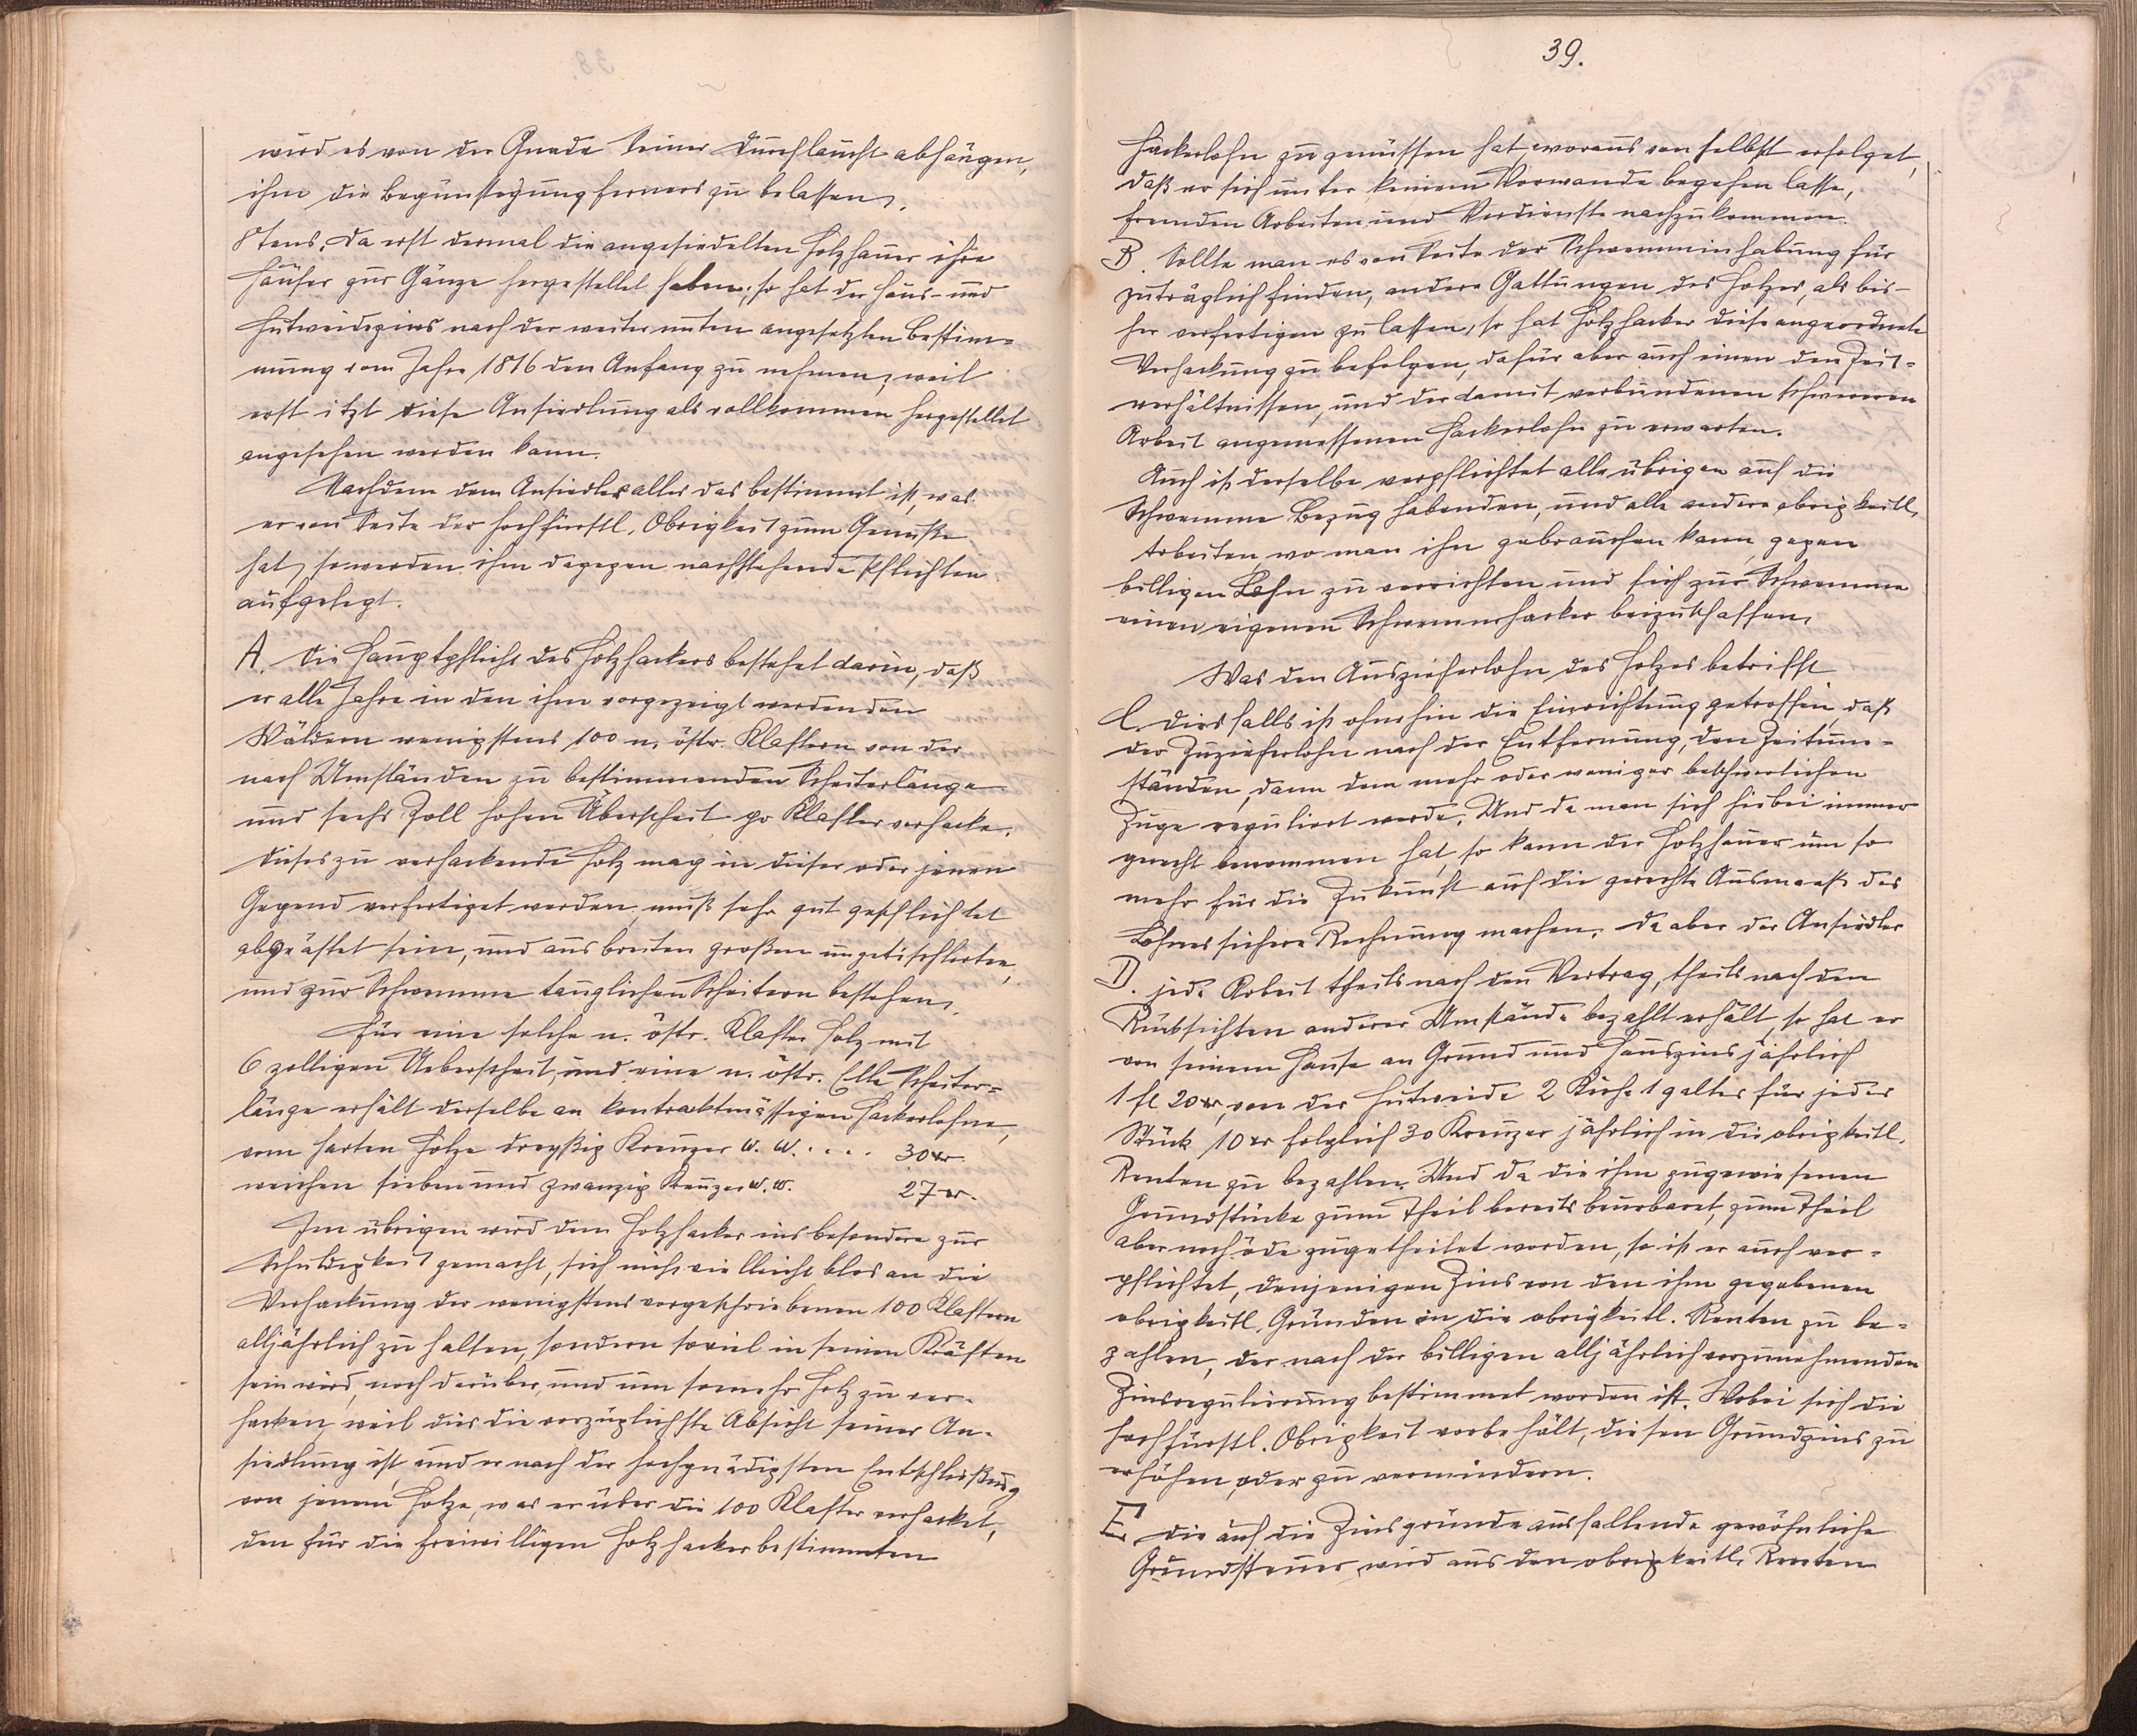 wird es von der Gnade Seiner Durchlaucht abhängen,
ihm die Begünstigung ferners zu belassen.
8tens. Da erst dermal die angesiedelten Holzhauer ihre
Häuser zur Gänze hergestellet haben, so hat der Haus- und
Hutweidzins nach der weiter unten angesetzten Bestim=
mung vom Jahre 1816 den Anfang zu nehmen, weil
erst itzt diese Ansiedlung als vollkommen hergestellet
angesehen werden kann.
Nachdem dem Ansiedler alles das bestimmt ist, was
er von Seite der hochfürstl. Obrigkeit zum Genuße
hat, so werden ihm dagegen nachstehende Pflichten
aufgelegt.
A. Die Hauptpflicht des Holzhackers bestehet darin, daß
er alle Jahre in den ihm vorgezeigt werdenden
Wäldern wenigstens 100 n. östr. Klaftern von der
nach Umständen zu bestimmenden Scheiterlänge
und sechs Zoll hohen Überscheit pr Klafter verhacke.
Dieses zu verhackende Holz mag in dieser oder jenen
Gegend verfertiget werden, muß sehr gut geschlichtet
abgeästet sein, und aus breiten großen
und zur Schwemme tauglichen Scheitern bestehen.
Für eine solche n. östr. Klafter Holz mit
6 zolligen Ueberscheit, und eine n. östr. Elle Scheiter=
länge erhält derselbe an kontraktmässigen Hackerlohne,
vom harten Holze dreyßig Kreuzer W. W. . . . . 30 xr
weichen sieben und zwanzig Kreuzer W. W. 27 xr.
Im übrigen wird dem Holzhacker insbesondere zur
Schuldigkeit gemacht, sich nicht vielleicht blos an die
Verhackung der wenigstens vorgeschriebenen 100 Klaftern
alljährlich zu halten, sondern soviel in seinen Kräften
sein wird, noch darüber, und um somehr Holz zu ver=
hacken, weil dies die vorzüglichste Absicht seiner An=
siedlung ist, und er nach der hochgnädigsten Entschließung
von jenem Holze, was er über die 100 Klafter verhacket,
den für die freiwilligen Holzhacker bestimmten
39.
Hackerlohn zu genüssen hat, woraus von selbst erfolget,
daß er sich unter keinem Vorwande begehen lasse,
fremden Arbeiten und Verdienste nachzukommen.
B. Sollte man es von Seite der Schwemminhabung für
zuträglich finden, andere Gattungen des Holzes, als bis=
her verfertigen zu lassen, so hat Holzhacker diese angeordnete
Verhackung zu befolgen, dafür aber auch einen den Zeit=
verhältnissen, und der damit verbundenen schweren
Arbeit angemessenen Hackerlohn zu erwarten.
Auch ist derselbe verpflichtet alle übrigen auf die
Schwemme Bezug habenden, und alle andere obrigkeitl.
Arbeiten, wo man ihn gebrauchen kann, gegen
billigen Lohn zu verrichten und sich zur Schwemme
einen eigenen Schwemmhacker beizuschaffen.
Was den Auszieherlohn des Holzes betrifft
C. Diesfalls ist ohnehin die Einrichtung getroffen, daß
der Zuzieherlohn nach der Entfernung, den Zeitum=
ständen, dann dem mehr oder weniger beschwerlichen
Zuge reguliert werde. Und da man sich hiebei immer
gerecht benommen hat, so kann der Holzhauer um so
mehr für die Zukunft auf die gerechte Ausmaaß des
Lohnes sichere Rechnung machen. Da aber der Ansiedler
D. jede Arbeit theils nach den Vertrag, theils nach den
Rücksichten anderer Umstände bezahlt erhält, so hat er
von seinem Hause an Grund und Hauszins jährlich
1 fl 20 xr, von der Hutweide 2 Kühe 1 galtes für jedes
Stück 10 xr folglich 30 Kreuzer jährlich in die obrigkeitl.
Renten zu bezahlen. Und da die ihm zugewiesenen
Grundstücke zum Theil bereits beurbaret, zum Theil
aber noch öde zugetheilet worden, so ist er auch ver=
pflichtet, denjenigen Zins von den ihm gegebenen
obrigkeitl. Gründen in die obrigkeitl. Renten zu be=
zahlen, der nach der billigen alljährlich vorzunehmenden
Zinsregulierung bestimmet worden ist. Wobei sich die
hochfürstl. Obrigkeit vorbehält, diesen Grundzins zu
erhöhen oder zu vermindern.
E. Die auf die Zinsgründe ausfallende gewöhnliche
Grundsteuer wird aus den obrigkeitl. Renten